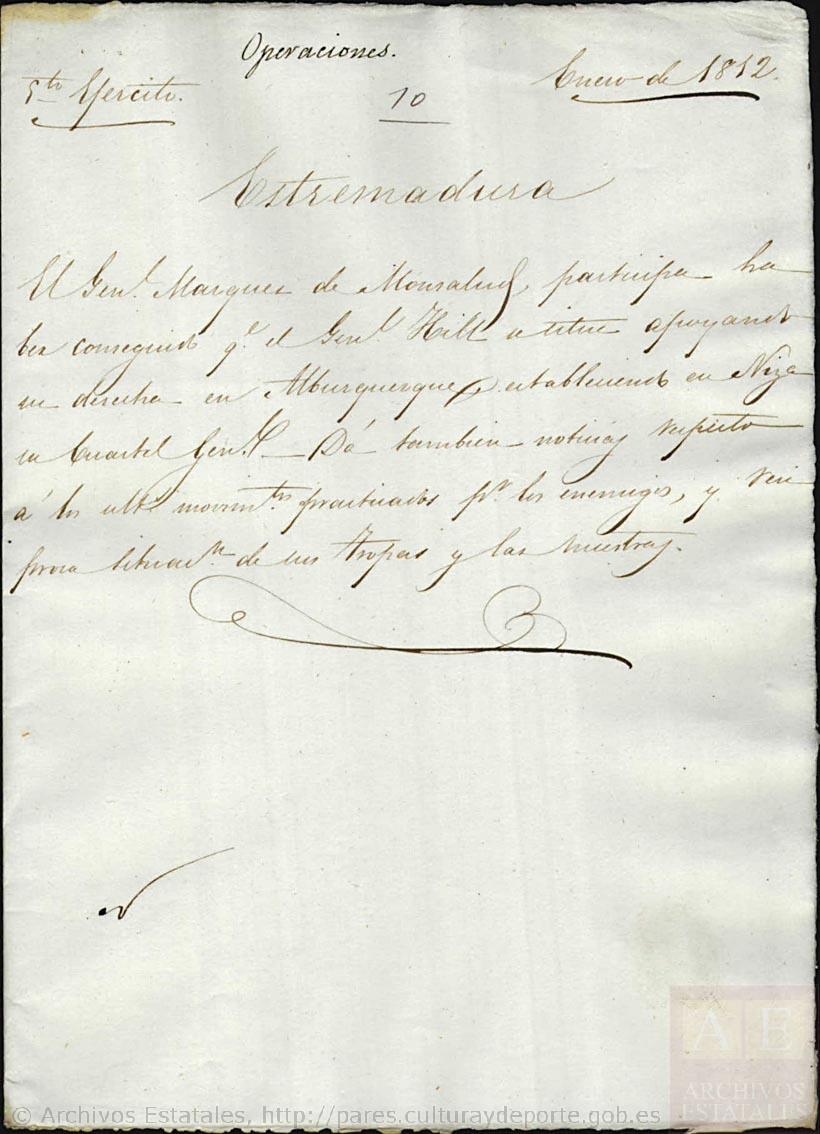 Operaciones.
5to Ejercito.
10
Enero de 1812.
Estremadura
El Genl. Marques de Monsalud, participa ha
ber conseguido qe. el Genl. Hill se situe apoyando
su derecha en Alburquerque, estableciendo en Niza
su Cuartel Genl. — Dá tambien noticias respecto
á los ults. movimtos. practicados pr. los enemigos, y
situacn. de sus tropas y las nuestras.
© Archivos Estatales, http://pares.culturaydeporte.gob.es
AE
ARCHIVOS
ESTATALES